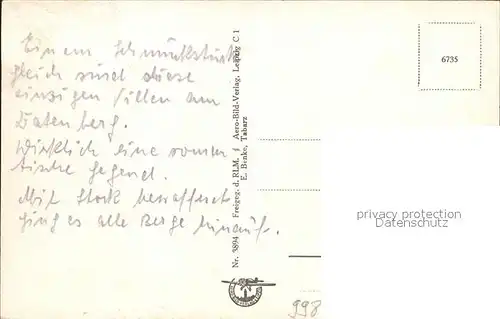 Einem Schmuckstück
gleich sind diese
einzigen Villen am
Datenberg.
Wirklich eine roman
tische Gegend.
Mit Stock bewaffnet
ging es alle Berge hinauf.
Nr. 3894 Freigeg. d. RLM. Aero-Bild-Verlag, Leipzig C 1
E. Benke, Tabarz
6735
privacy protection
Datenschutz
998